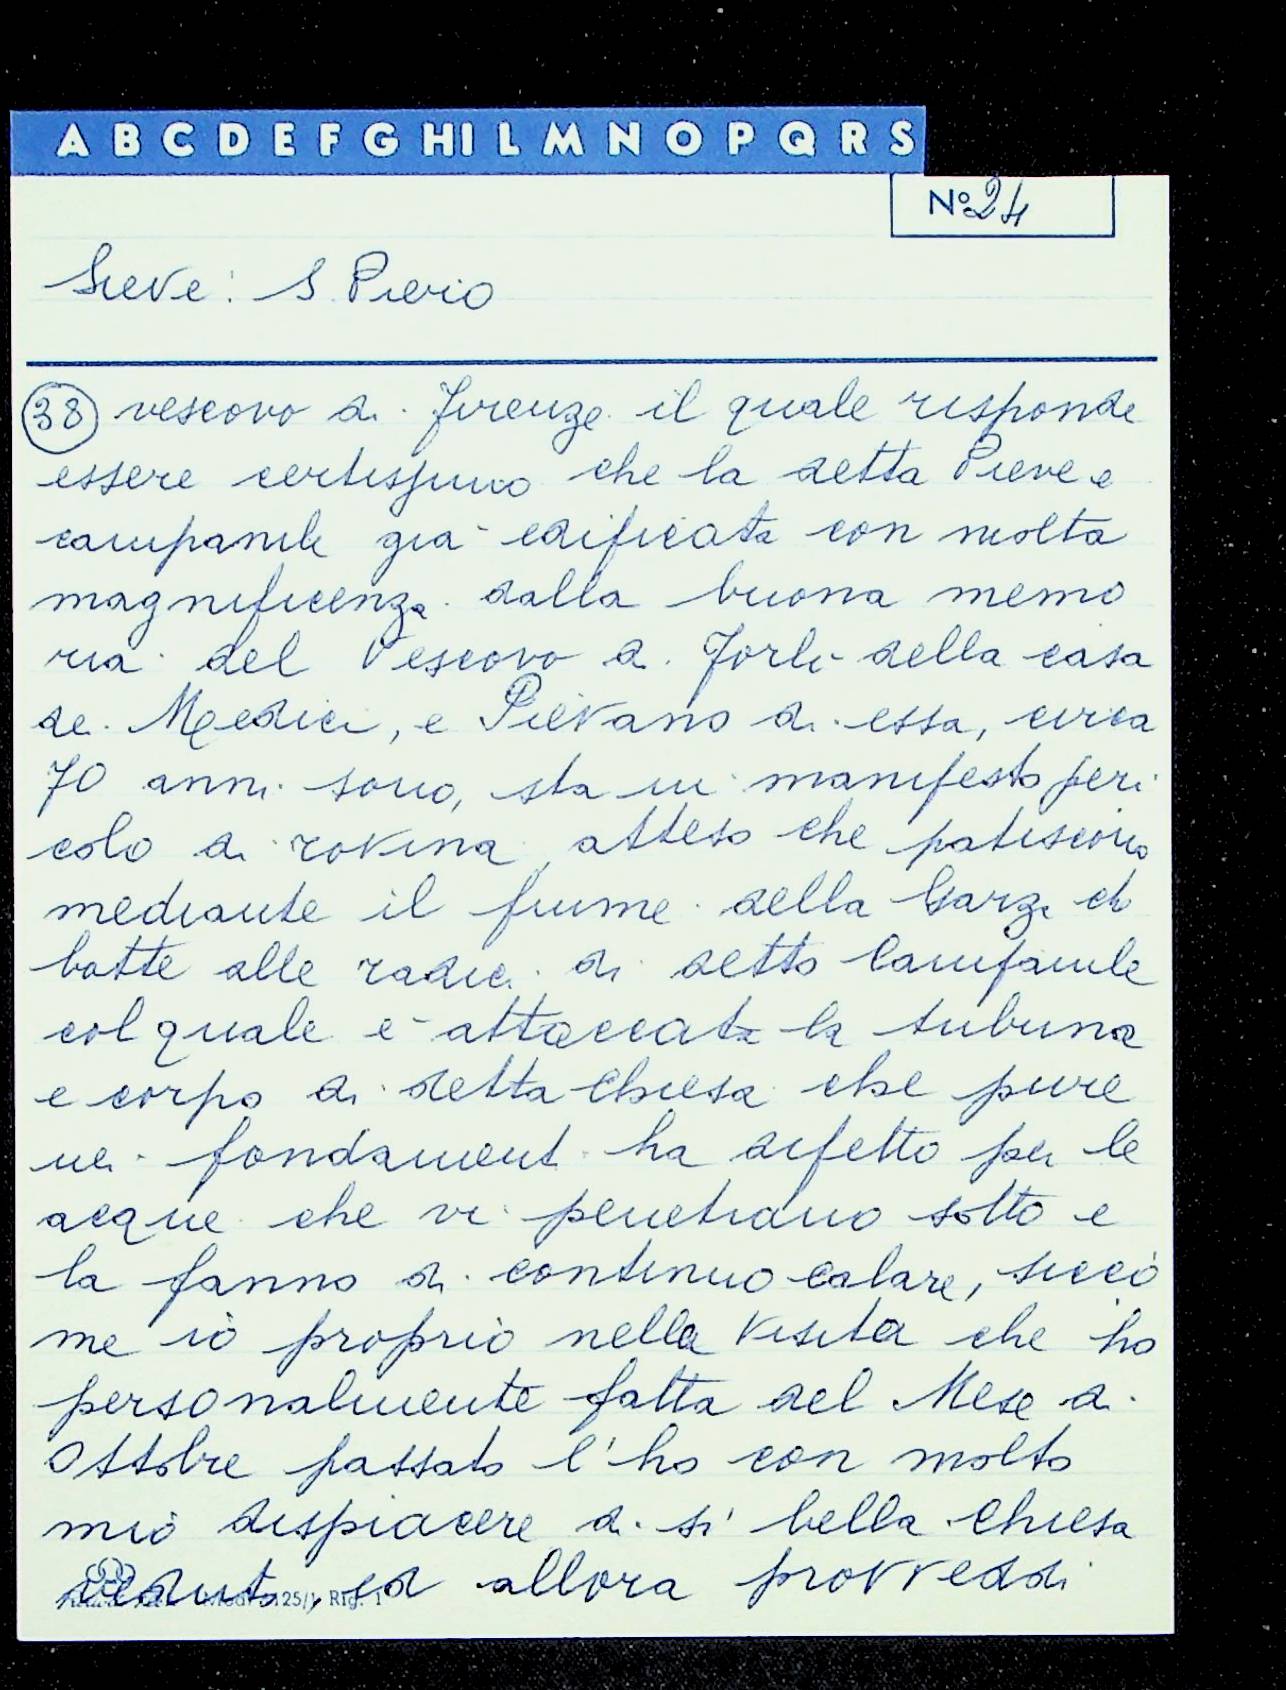 A B C D E F G HI L M N O P Q R S
Nº 24
Sieve: S. Piero
38 vescovo di Firenze il quale risponde
essere certissimo che la detta Pieve e
campanile già edificata con molta
magnificenza dalla buona memo
ria del Vescovo di Forlì della casa
de Medici, e Pievano di essa, circa
70 anni sono, sta in manifesto peri
colo di rovina, atteso che patiscono
mediante il fiume della Garza che
batte alle radici di detto Campanile
col quale è attaccata la tribuna
e corpo di detta Chiesa che pure
nei fondamenti ha difetto per le
acque che vi penetrano sotto e
la fanno di continuo calare, sicco
me io proprio nella visita che ho
personalmente fatta del Mese di
Ottobre passato l'ho con molto
mio dispiacere di sì bella Chiesa
veduto, ed allora provveddi
125/ Rig. 1